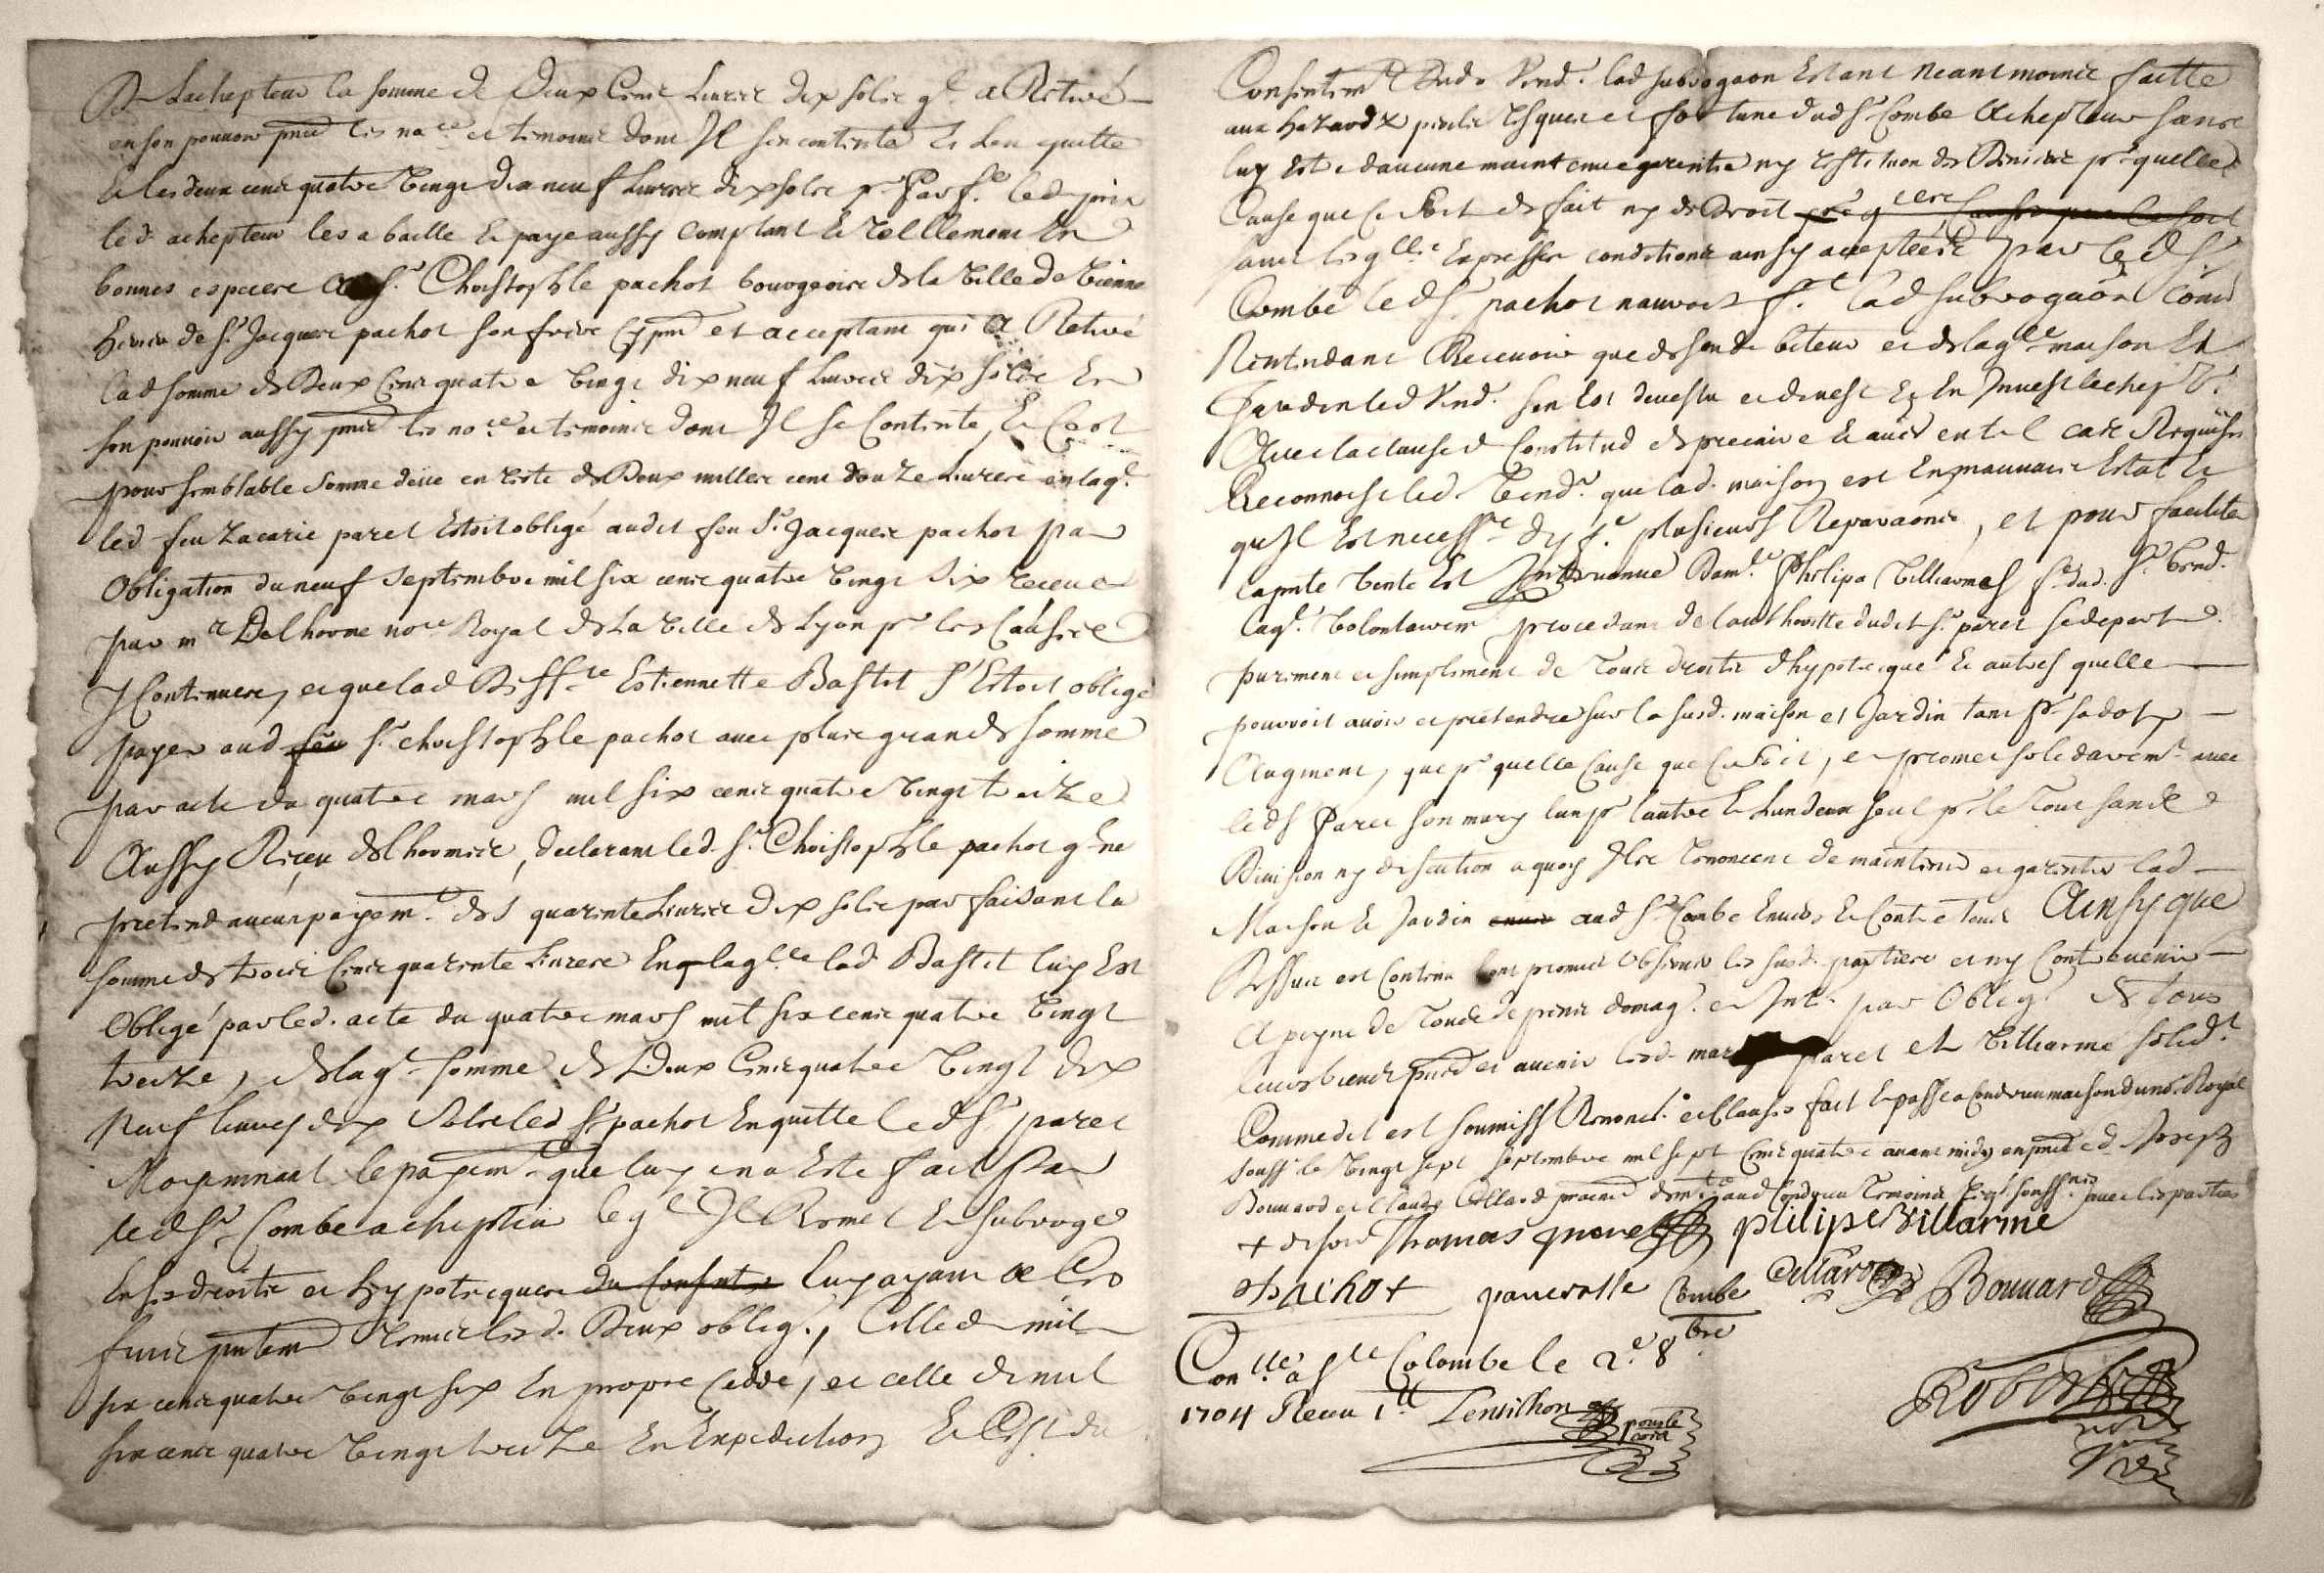 Lachepteur la somme de Deux Cens Livres dix sols q. a Retiré
en son pouvoir pnce les noe et temoins dont Il sen contente et len quitte
Et les deux cens quatre vingt dix neuf Livres dix sols pr Parfe led prix
led achepteur les a baille et paye aussy comptant et reellement En
bonnes especes Sr. Christophle pachot bourgeois de la ville de vienne
herier de Sr Jacques pachot son frere Cy pnt et acceptant qui a Retiré
lad somme de Deux Cens quatre vingt dix neuf Livres dix sols En
son pouvoir aussy pnce les noe et temoins dont Il se Contente, Et Cest
pour semblable somme deüe en reste de Deux milles cent douze Livres en laqe
led feu Zacarie paret Estoit obligé audit feu Sr. Jacques pachot par
Obligation du neuf septembre mil six cens quatre vingt six receue
par mr Delhorme nore Royal de la ville de Lyon pr les Causes
y Contenues, et que lad Estiennette Bastet s'Estoit obligé
payer aud feu Sr. christophle pachot avec plus grande somme
par acte du quatre mars mil six cens quatre vingt treize
Aussy Receu delhorme, declarant led. Sr. Christophle pachot qe ne
pretend aucun payemt des quarante Livres dix sols par faisant la
somme de trois Cens quarente Livres En laqlle lad Bastet luy Est
Obligé par led. acte du quatre mars mil six cens quatre vingt
treize, de laqe somme de Deux Cens quatre vingt dix
neuf livres dix sols led Sr pachot En quitte led Sr paret
Moyennant le payemt que luy en a Esté fait Par
led Sr Combe achepteur leql Il Remet Et subroge
En ses droits et hypoteques du consente luy ayant a Ces
fins pntem Remis lesd. Deux oblig., Celle de mil
six cens quatre vingt six En propre cedde, et celle de mil
six cens quatre vingt treize En Expedition Et Cest du
Consintemt Dud. Vend. lad subrogaon Estant neantmoins faitte
aux Hazards perils risques et fortune dud Sr Combe Achepteur sans
luy Estre daucune maintenue garentie ny restituon de Deniers pr quelle
Cause que Ce Soit de fait ny de Droit
sans lesqlles Expresses conditions ainsy acceptées par led Sr
Combe led Sr pachot nauroit fe lad subrogaon Comme
Nentendant Recevoir que de son debiteur et de laqe maison Et
Jardin led Vend. sen Est devestu et devest Et En Investi lachepr
Avec la clause de Constitud de precaire Et aud en tel Cas Requises
Reconnoist led. Vend. que lad. maison est En mauvais Estat Et
quIl Est necessre dy fe plusieurs Reparaons, et pour faciliter
la pnte vente Est Intervenue Dame Philipa Villiarmes fe dud. Sr Vend.
laqe volontairem procedant de lauthoritté dudit Sr paret sedepart
purement et simplement de tous droits dhypoteque Et autres quelle
pouvoit avoir et pretendre sur la susd. maison et Jardin tant pr sa dot
Augment, que pr quelle Cause que Ce Soit, et promet solidairemt avec
led Sr Paret son mary lun pr lautre Et lun deux seul pr le tout sans
Division ny discution a quoy Ils renoncent de maintenir et garentir lad
Maison Et Jardin aud Sr Combe Envers Et Contre tous Ainsy que
Dessus est Contenu Lont promis Observer les susd. parties et ny Contrevenir
A peyne de tous depens domag. et Int. par Oblig. de tous
leurs biens pnts et avenir lesd. paret et Villiarme solid.
Comme dit est soumiss Renonct. et Clauses fait Et passé a Condrieu maison du nore Royal
soussé le vingt sept septembre mil sept Cens quatre avant midy en pnce de Joseph
Bouuard et Claude Cellard aud Condrieu temoins soussnés avec les parties
Thomas paret philipe villarme
Pachot paverolle Combe Cellard Bouuard
Conlle a Ste Colombe le 2e 8bre
1704 Receu 1tt Lentilhon